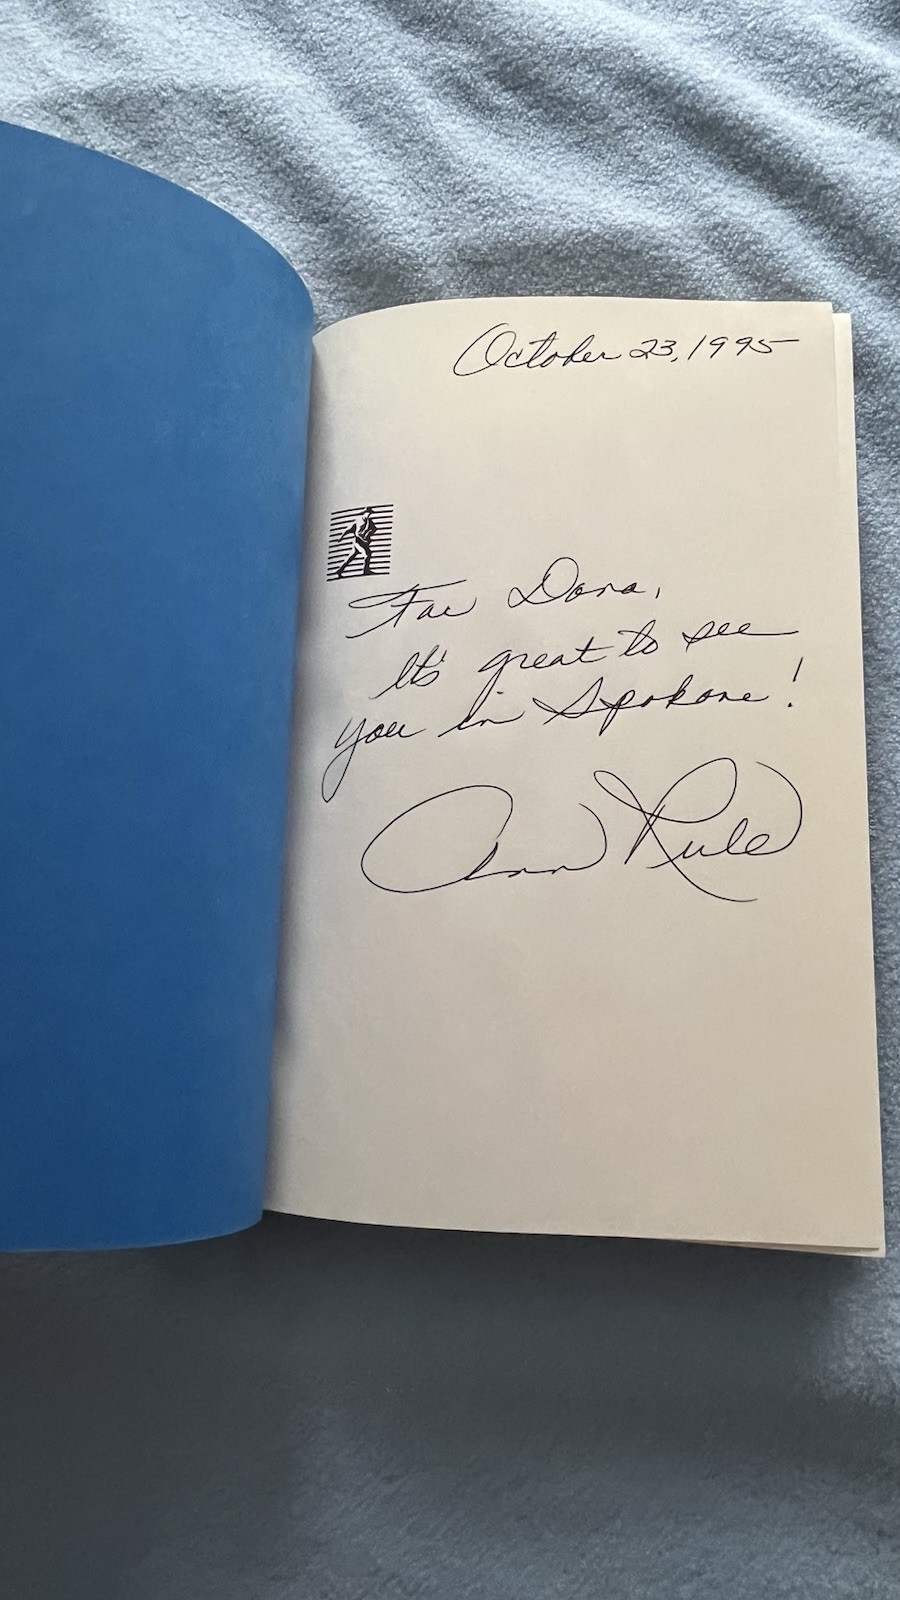 October 23, 1995
For Dona,
It's great to see
you in Spokane!
Ann Rule